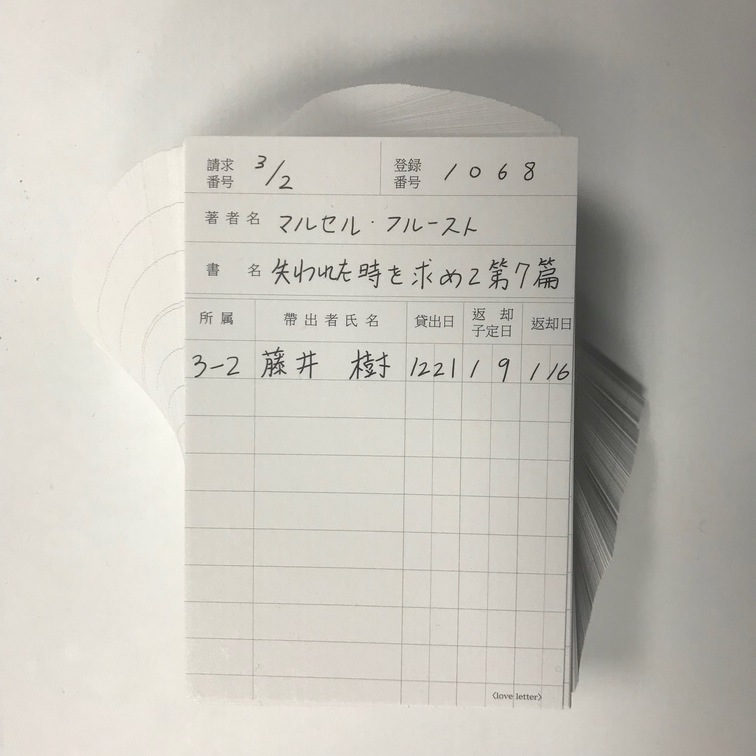 請求番号 3/2 登録番号 1068
著者名 マルセル・フルースト
書名 失われた時を求めて第7篇
所属 帶出者氏名 貸出日 返却子定日 返却日
3-2 藤井 樹 1221 1 9 1 16
〈love letter〉